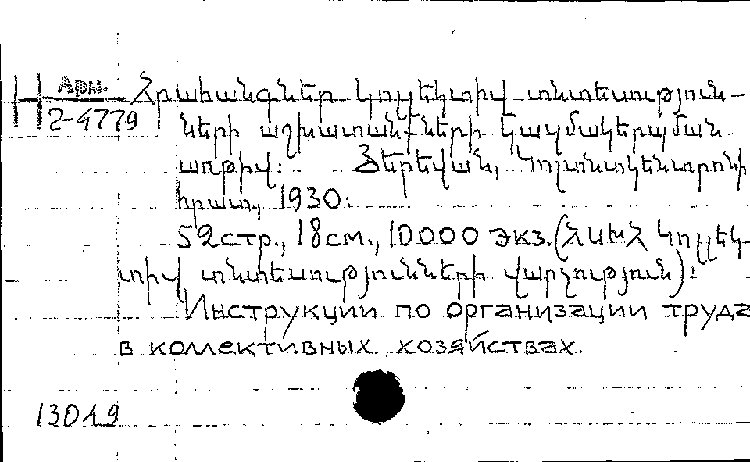 Арм. Հրահանգներ կոլեկտիվ տնտեսություն-
2-4779 ների աշխատանքների կազմակերպման
առթիվ: Յերեվան, Կոլտնտկենտրոնի
հրատ, 1930.
52 стр., 18 см., 10000 экз. (ՀՍԽՀ Կոլլեկ-
տիվ տնտեսությունների վարչություն):
Инструкции по организации труда
в коллективных хозяйствах.
13019